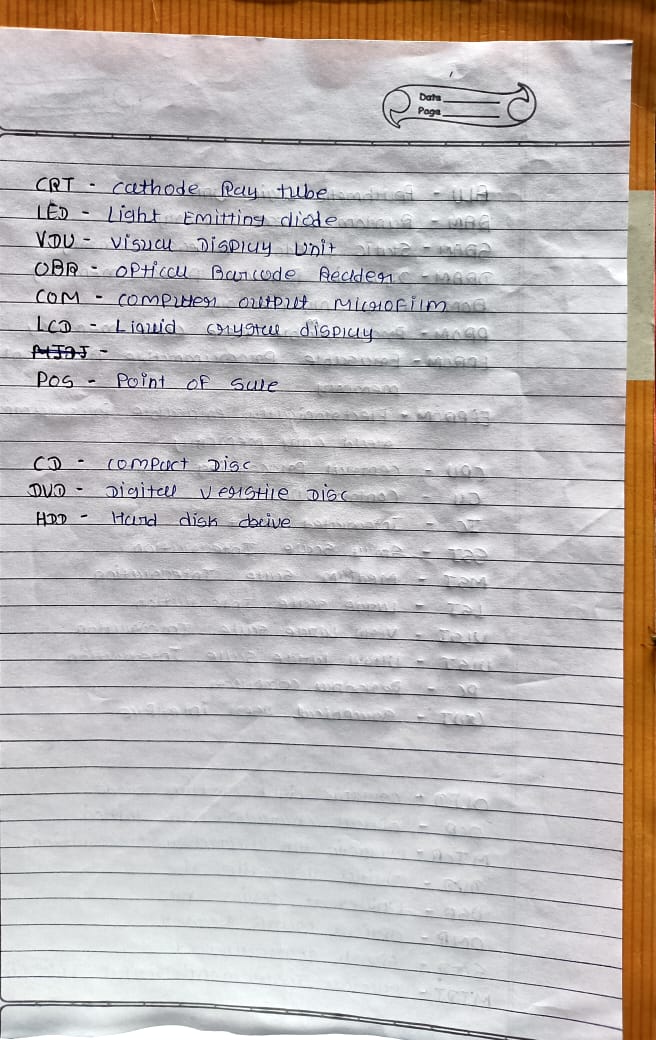 Date
Page
CRT - Cathode Ray tube
LED - Light Emitting diode
VDU - Visual Display Unit
OBR - Optical Barcode Reader
COM - Computer output Microfilm
LCD - Liquid crystal display
POS - Point of Sale
CD - Compact Disc
DVD - Digital Verstile Disc
HDD - Hard disk drive